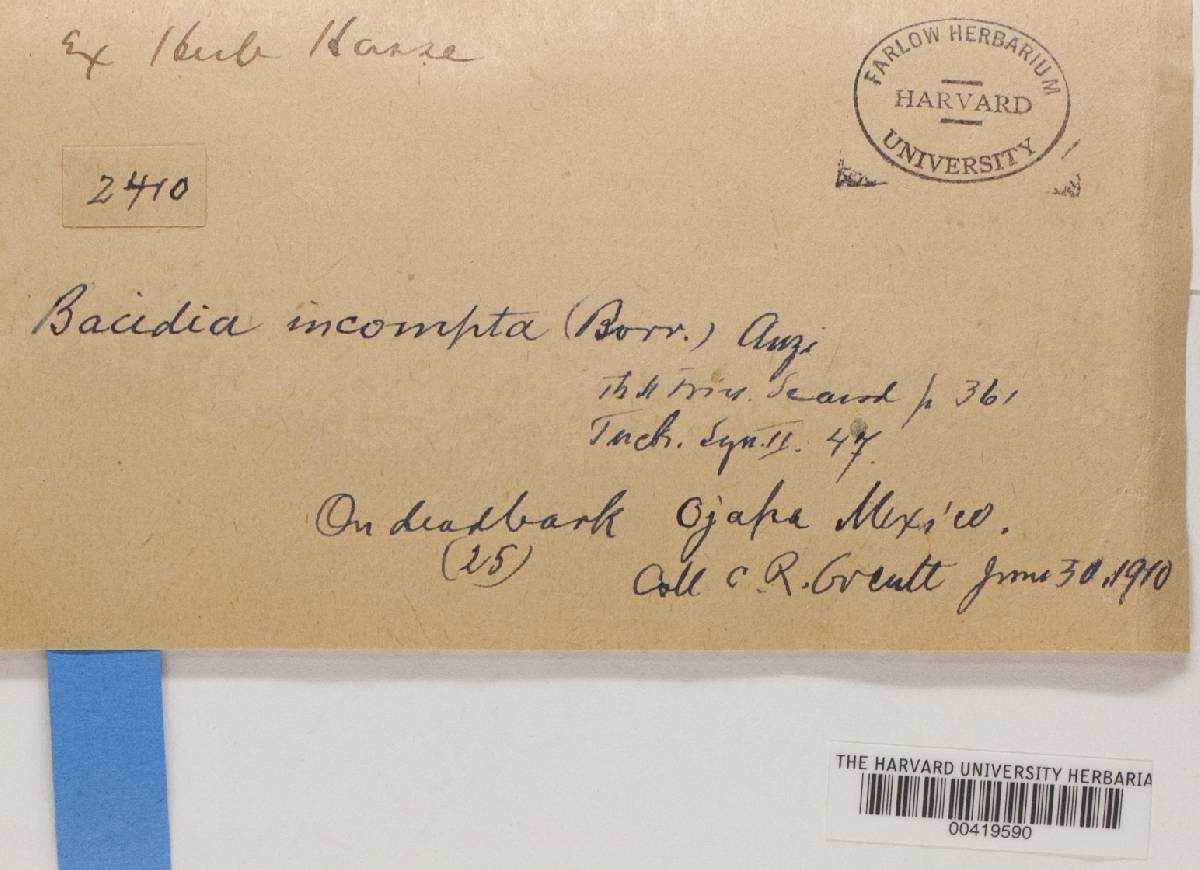 Ex Herb Hasse
FARLOW HERBARIUM
HARVARD
UNIVERSITY
2410
Bacidia incompta (Borr.) Anzi
Th. Fries. Scand p 361
Tuck. Syn. II. 47.
On dead bark Ojapa Mexico.
(25)
Coll C R. Orcutt June 30, 1910
THE HARVARD UNIVERSITY HERBARIA
00419590